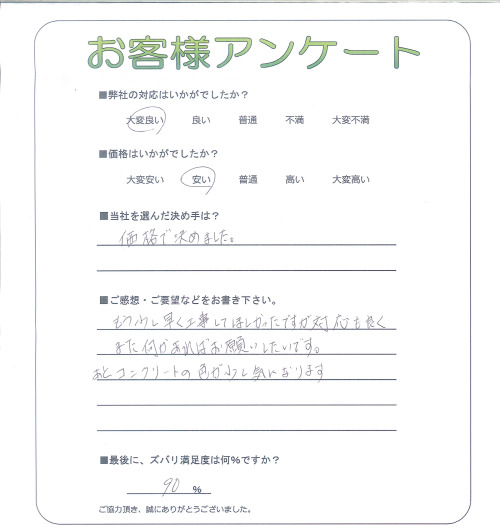 お客様アンケート
■弊社の対応はいかがでしたか？
大変良い 良い 普通 不満 大変不満
■価格はいかがでしたか？
大変安い 安い 普通 高い 大変高い
■当社を選んだ決め手は？
価格で決めました。
■ご感想・ご要望などをお書き下さい。
もう少し早く工事してほしかったですが対応も良く
また何かあればお願いしたいです。
あとコンクリートの色が少し気になります
■最後に、ズバリ満足度は何%ですか？
90 %
ご協力頂き、誠にありがとうございました。